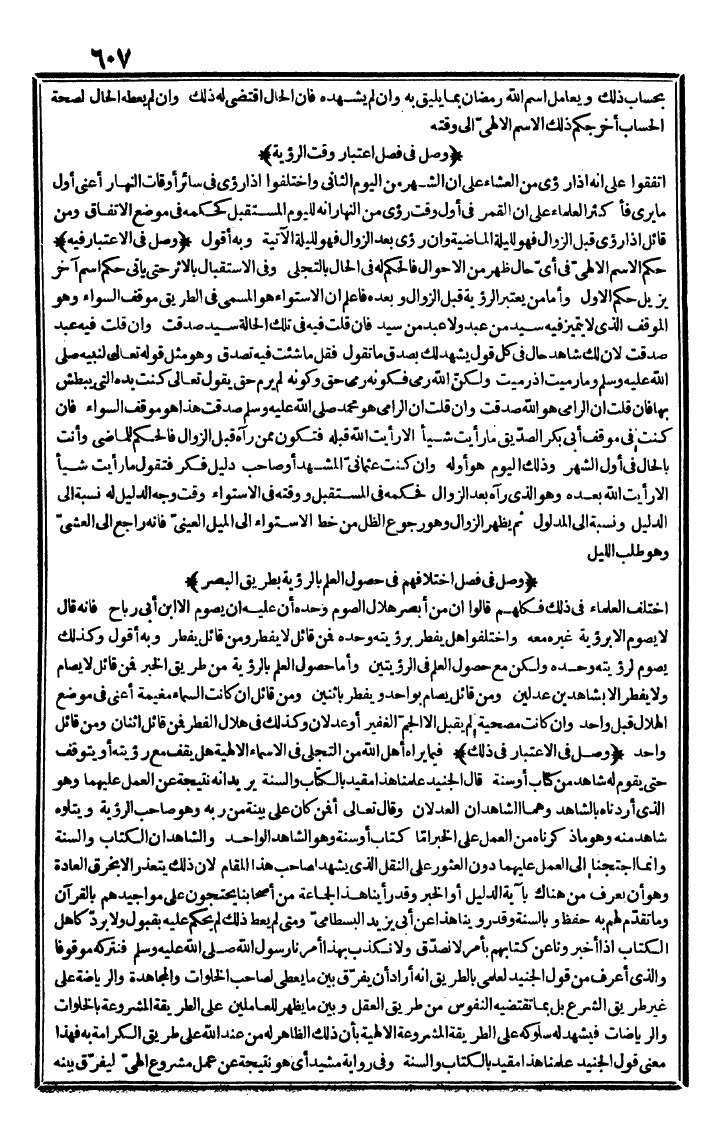 ٦٠٧
بحساب ذلك ويعامل اسم الله رمضان بما يليق به وان لم يشهده فان الحال اقتضى له ذلك وان لم يعطه الحال لصحة
الحساب أخر حكم ذلك الاسم الالهىّ الى وقته
﴿وصل فى فصل اعتبار وقت الرؤية﴾
اتفقوا على انه اذا رؤى من العشاء على ان الشهر من اليوم الثانى واختلفوا اذا رؤى فى سائر أوقات النهار أعنى أول
ما يرى فأكثر العلماء على ان القمر فى أول وقت رؤى من النهار انه لليوم المستقبل كحكمه فى موضع الاتفاق ومن
قائل اذا رؤى قبل الزوال فهو لليلة الماضية وان رؤى بعد الزوال فهو لليلة الآتية وبه أقول ﴿وصل فى الاعتبار فيه﴾
حكم الاسم الالهىّ فى أىّ حال ظهر من الاحوال فالحكم له فى الحال بالتجلى وفى الاستقبال بالاثر حتى يأتى حكم اسم آخر
يزيل حكم الاول وأما من يعتبر الرؤية قبل الزوال وبعده فاعلم ان الاستواء هو المسمى فى الطريق موقف السواء وهو
الموقف الذى لا يتميز فيه سيد من عبد ولا عبد من سيد فان قلت فيه فى تلك الحالة سيد صدقت وان قلت فيه عبد
صدقت لان لك شاهد حال فى كل قول يشهد لك بصدق ما تقول فقل ما شئت فيه تصدق وهو مثل قوله تعالى لنبيه صلى
الله عليه وسلم وما رميت اذ رميت ولكنّ الله رمى فكونه رمى حق وكونه لم يرم حق يقول تعالى كنت يده التى يبطش
بها فان قلت ان الرامى هو الله صدقت وان قلت ان الرامى هو محمد صلى الله عليه وسلم صدقت هذا هو موقف السواء فان
كنت فى موقف أبى بكر الصدّيق ما رأيت شيأ الا رأيت الله قبله فتكون ممن رآه قبل الزوال فالحكم للماضى وأنت
بالحال فى أول الشهر وذلك اليوم هو أوله وان كنت عثمانىّ المشهد أو صاحب دليل فكر فتقول ما رأيت شيأ
الا رأيت الله بعده وهو الذى رآه بعد الزوال فحكمه فى المستقبل ووقته فى الاستواء وقت وجه الدليل له نسبة الى
الدليل ونسبة الى المدلول ثم يظهر الزوال وهو رجوع الظل من خط الاستواء الى الميل العينىّ فانه راجع الى العشىّ
وهو طلب الليل
﴿وصل فى فصل اختلافهم فى حصول العلم بالرؤية بطريق البصر﴾
اختلف العلماء فى ذلك فكلهم قالوا ان من أبصر هلال الصوم وحده أن عليه ان يصوم الا ابن أبى رباح فانه قال
لا يصوم الا برؤية غيره معه واختلفوا هل يفطر برؤيته وحده فمن قائل لا يفطر ومن قائل يفطر وبه أقول وكذلك
يصوم لرؤيته وحده ولكن مع حصول العلم فى الرؤيتين وأما حصول العلم بالرؤية من طريق الخبر فمن قائل لا يصام
ولا يفطر الا بشاهدين عدلين ومن قائل يصام بواحد ويفطر باثنين ومن قائل ان كانت السماء مغيمة أعنى فى موضع
الهلال قبل واحد وان كانت مصحية لم يقبل الا الجمّ الغفير أو عدلان وكذلك فى هلال الفطر فمن قائل اثنان ومن قائل
واحد ﴿وصل فى الاعتبار فى ذلك﴾ فيما يراه أهل الله من التجلى فى الاسماء الالهية هل يقف مع رؤيته أو يتوقف
حتى يقوم له شاهد من كتاب أو سنة قال الجنيد علمنا هذا مقيد بالكتاب والسنة يريد انه نتيجة عن العمل عليهما وهو
الذى أردناه بالشاهد وهما الشاهدان العدلان وقال تعالى أفمن كان على بينة من ربه وهو صاحب الرؤية ويتلوه
شاهد منه وهو ما ذكرناه من العمل على الخبر امّا كتاب أو سنة وهو الشاهد الواحد والشاهدان الكتاب والسنة
وانما احتجنا الى العمل عليهما دون العثور على النقل الذى يشهد لصاحب هذا المقام لان ذلك يتعذر الا بخرق العادة
وهو أن يعرف من هناك بآية الدليل أو الخبر وقد رأينا هذا لجماعة من أصحابنا يحتجون على مواجيدهم بالقرآن
وما تقدّم لهم به حفظ وبالسنة وقد روينا هذا عن أبى يزيد البسطامىّ ومتى لم يعط ذلك لم يحكم عليه بقبول ولا بردّ كاهل
الكتاب اذا أخبرونا عن كتابهم بأمر لا نصدّق ولا نكذب بهذا أمرنا رسول الله صلى الله عليه وسلم فنتركه موقوفا
والذى أعرف من قول الجنيد لعلمى بالطريق انه أراد أن يفرّق بين ما يعطى لصاحب الخلوات والمجاهدة والرياضة على
غير طريق الشرع بل بما تقتضيه النفوس من طريق العقل وبين ما يظهر للعاملين على الطريقة المشروعة بالخلوات
والرياضات فيشهد له سلوكه على الطريقة المشروعة الالهية بأن ذلك الظاهر له من عند الله على طريق الكرامة به فهذا
معنى قول الجنيد علمنا هذا مقيد بالكتاب والسنة وفى رواية مشيد أى هو نتيجة عن عمل مشروع الهىّ ليفرّق بينه